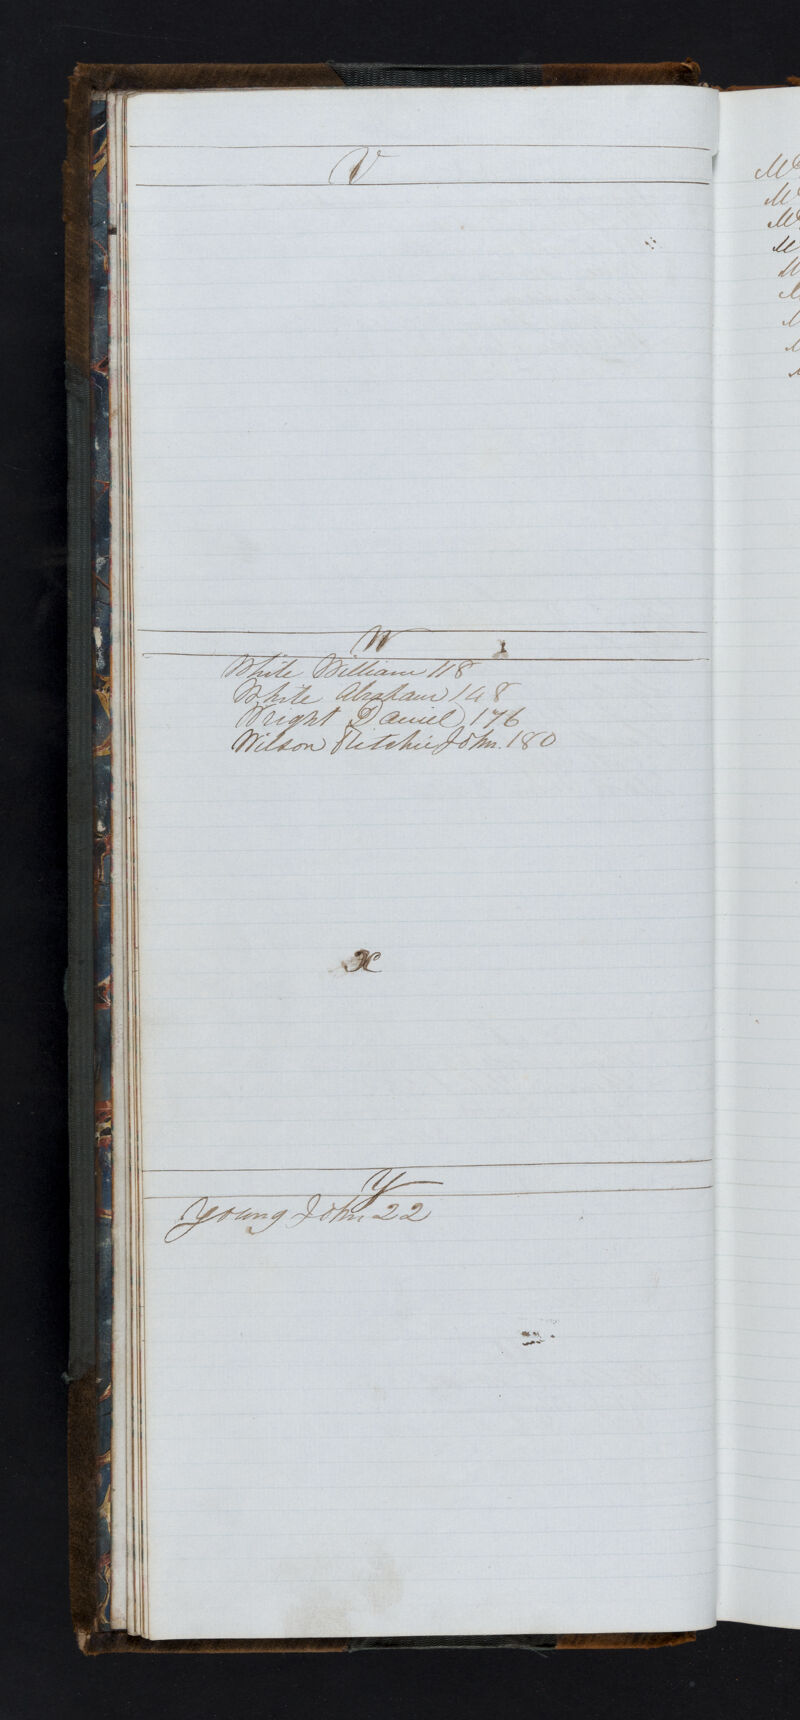 V
W
White William 118
White Abraham 148
Wright Daniel 176
Wilson Ritchie John. 180
X
Y
Young John 22